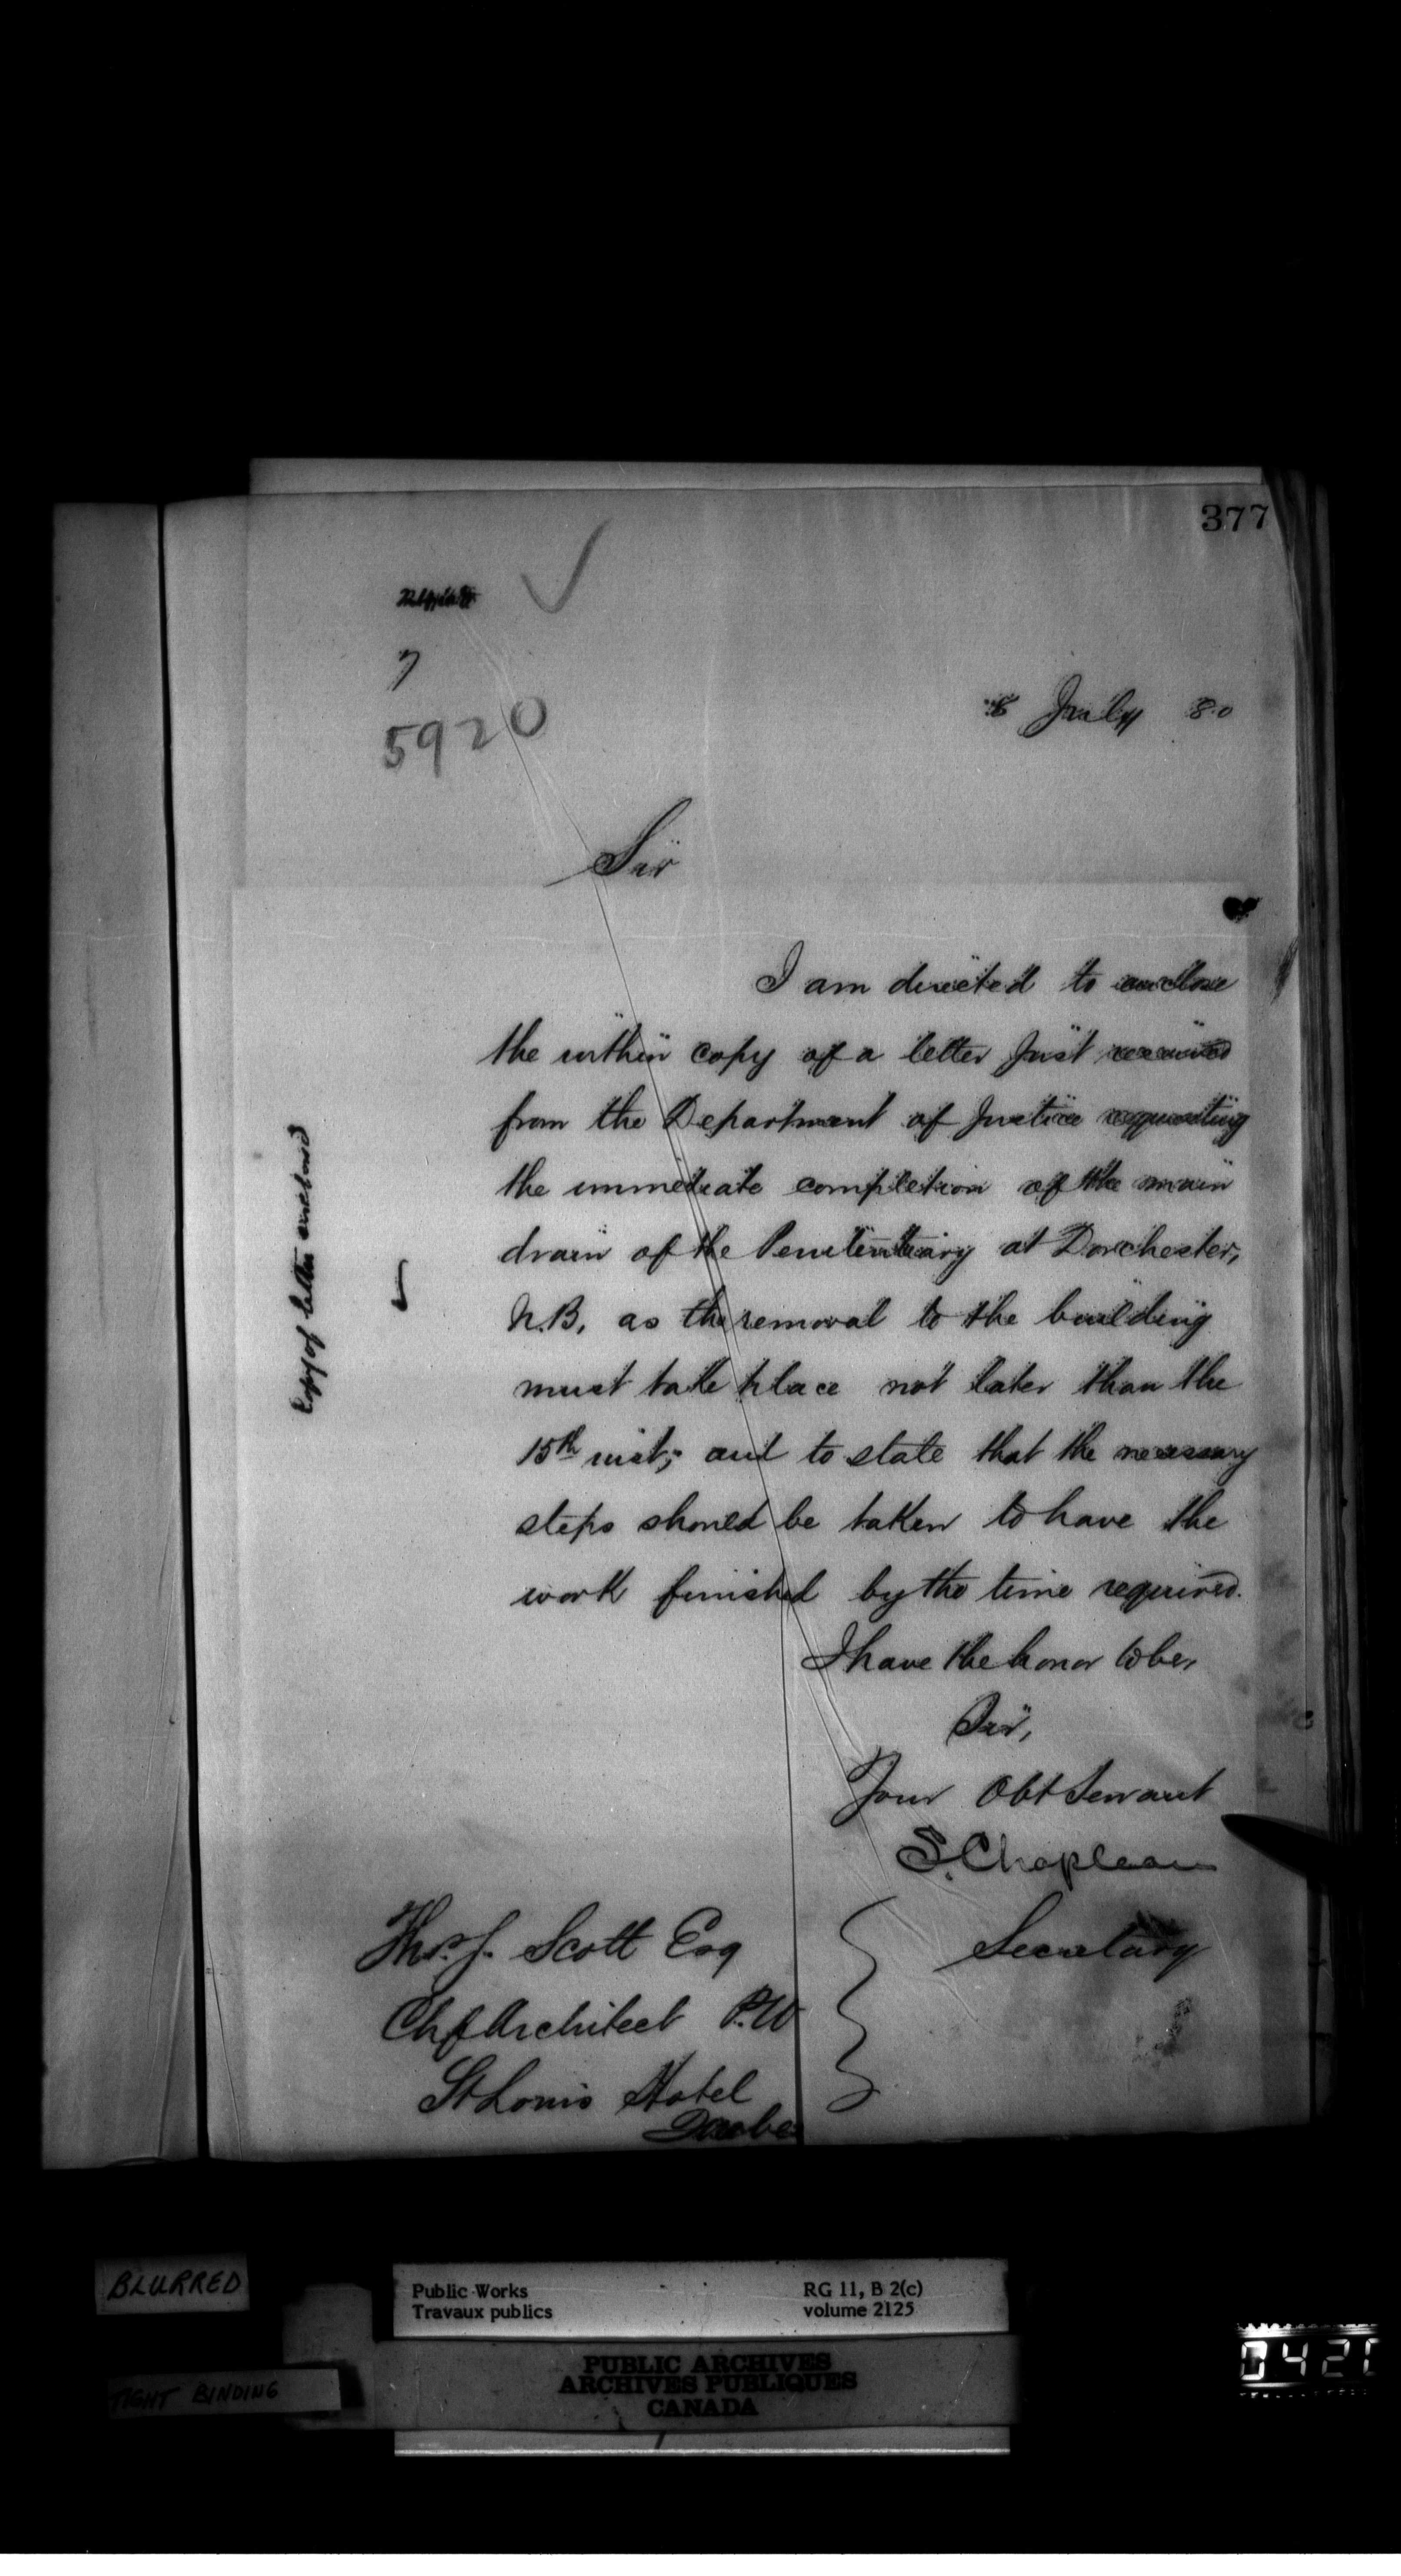 377
7
5920
8 July 80
Sir
I am directed to enclose
the within copy of a letter just received
from the Department of Justice requesting
the immediate completion of the main
drain of the Penitentiary at Dorchester,
N.B. as the removal to the building
must take place not later than the
15th inst; and to state that the necessary
steps should be taken to have the
work finished by the time required.
I have the honor to be,
Sir,
Your Obt Servant
S. Chapleau
Secretary
Thos. J. Scott Esq
Chf Architect P.W
St Louis Hotel
Quebec
Copy of letter enclosed
BLURRED
TIGHT BINDING
Public Works RG 11, B 2(c)
Travaux publics volume 2125
PUBLIC ARCHIVES
ARCHIVES PUBLIQUES
CANADA
0421